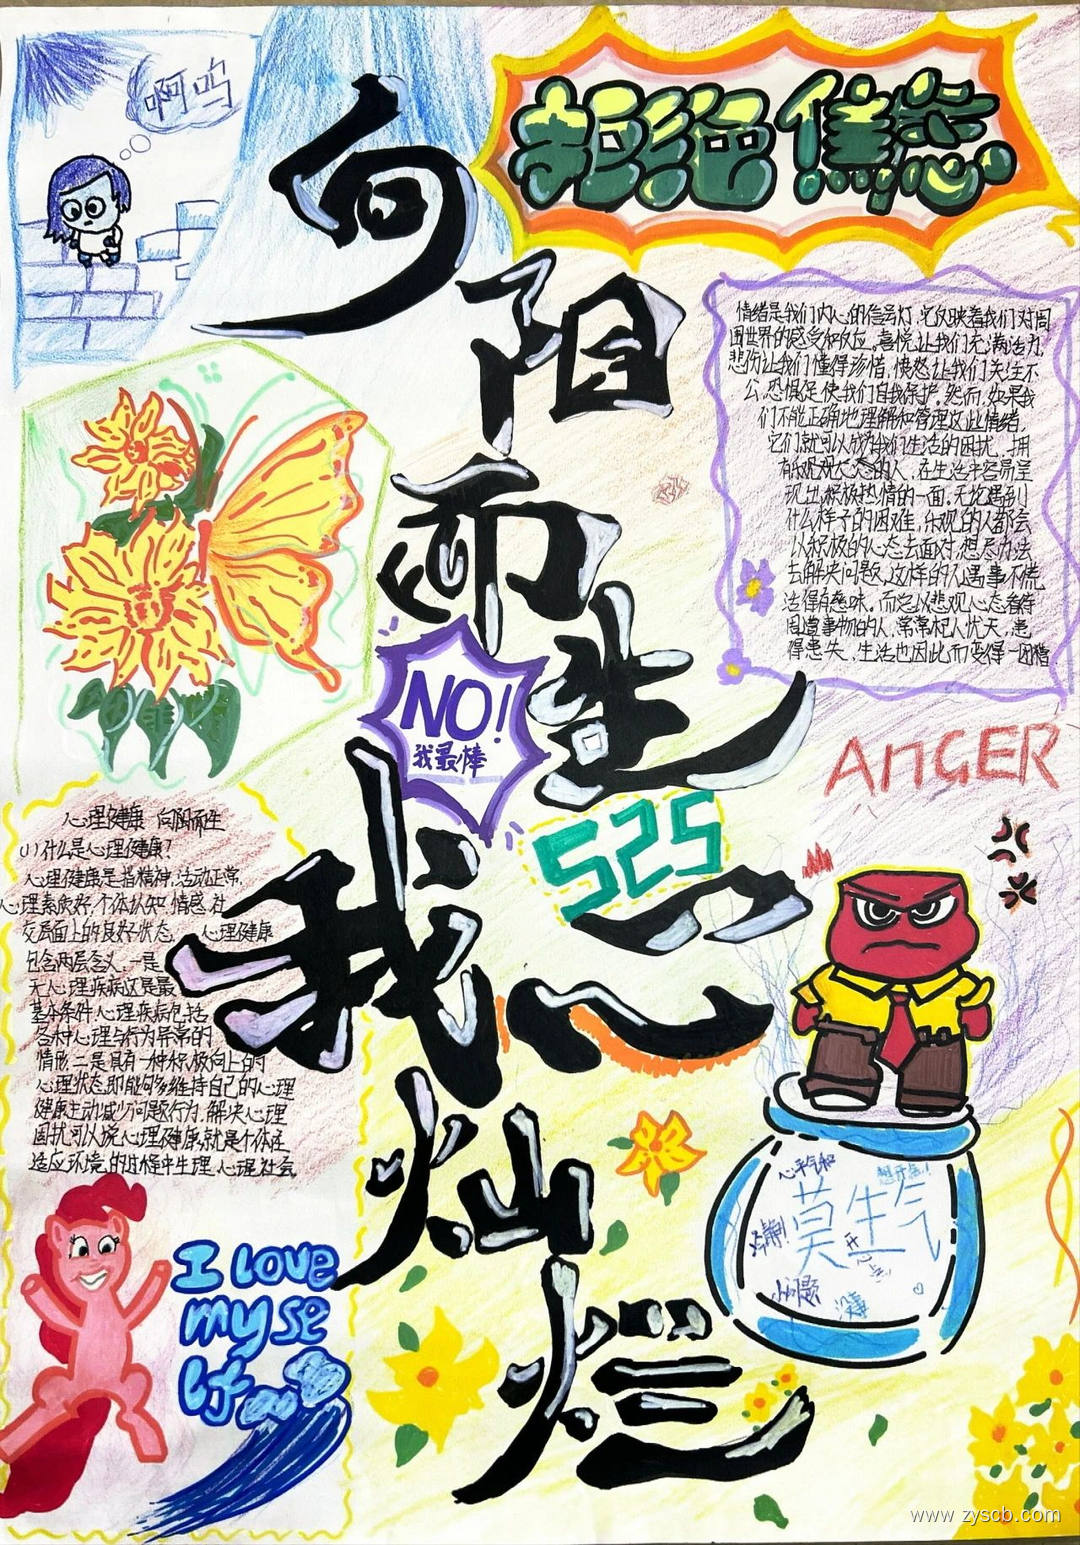 啊呜
拒绝焦虑
向阳而生
我心灿烂
情绪是我们内心的信号灯,它反映着我们对周
围世界的感受和反应。喜悦让我们充满活力,
悲伤让我们懂得珍惜,愤怒让我们关注不
公,恐惧促使我们自我保护。然而,如果我
们不能正确地理解和管理这些情绪,
它们就可以成为我们生活的困扰。拥
有乐观心态的人,在生活中容易呈
现出积极热情的一面,无论遇到
什么样子的困难,乐观的人都会
以积极的心态去面对,想尽办法
去解决问题,这样的人遇事不慌
活得有趣味。而总以悲观心态看待
周遭事物的人,常常杞人忧天,患
得患失,生活也因此而变得一团糟
NO!
我最棒
525
ANGER
心理健康 向阳而生
(1)什么是心理健康?
心理健康是指精神,活动正常,
心理素质好,个体认知,情感,社
交层面上的良好状态。 心理健康
包含两层含义,一是
无人心理疾病这是最
基本条件,心理疾病包括
各种心理与行为异常的
情形,二是具有一种积极向上的
心理状态,即能够维持自己的心理
健康主动减少问题行为,解决心理
困扰可以说心理健康就是个体在
适应环境的过程中生理,心理,社会
心平气和
想开点!
莫生气
冷静
开心点
I love
myse
lf
www.zyscb.com